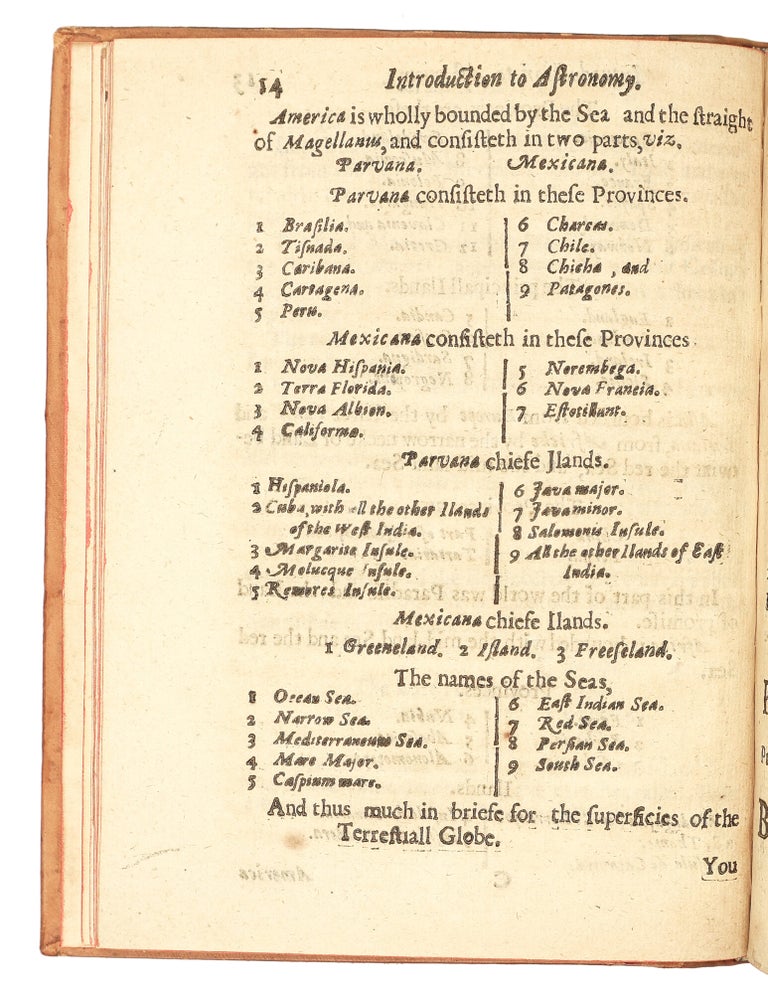 14
Introduction to Aſtronomy.
America is wholly bounded by the Sea and the ſtraight
of Magellanus, and conſiſteth in two parts, viz.
Parvana. Mexicana.
Parvana conſiſteth in theſe Provinces.
1 Braſilia.
2 Tiſnada.
3 Caribana.
4 Cartagena.
5 Peru.
6 Charcas.
7 Chile.
8 Chicha, and
9 Patagones.
Mexicana conſiſteth in theſe Provinces
1 Nova Hiſpania.
2 Terra Florida.
3 Nova Albion.
4 California.
5 Norembega.
6 Nova Francia.
7 Eſtotillant.
Parvana chiefe Ilands.
1 Hiſpaniola.
2 Cuba, with all the other Ilands
of the Weſt India.
3 Margarite Inſule.
4 Molucque Inſule.
5 Inſule.
6 Java major.
7 Java minor.
8 Salomonis Inſule.
9 All the other Ilands of Eaſt
India.
Mexicana chiefe Ilands.
1 Greeneland. 2 Iſland. 3 Freeſeland.
The names of the Seas,
1 Ocean Sea.
2 Narrow Sea.
3 Mediterraneum Sea.
4 Mare Major.
5 Caſpium mare.
6 Eaſt Indian Sea.
7 Red Sea.
8 Perſian Sea.
9 South Sea.
And thus much in briefe for the ſuperficies of the
Terreſtiall Globe.
You